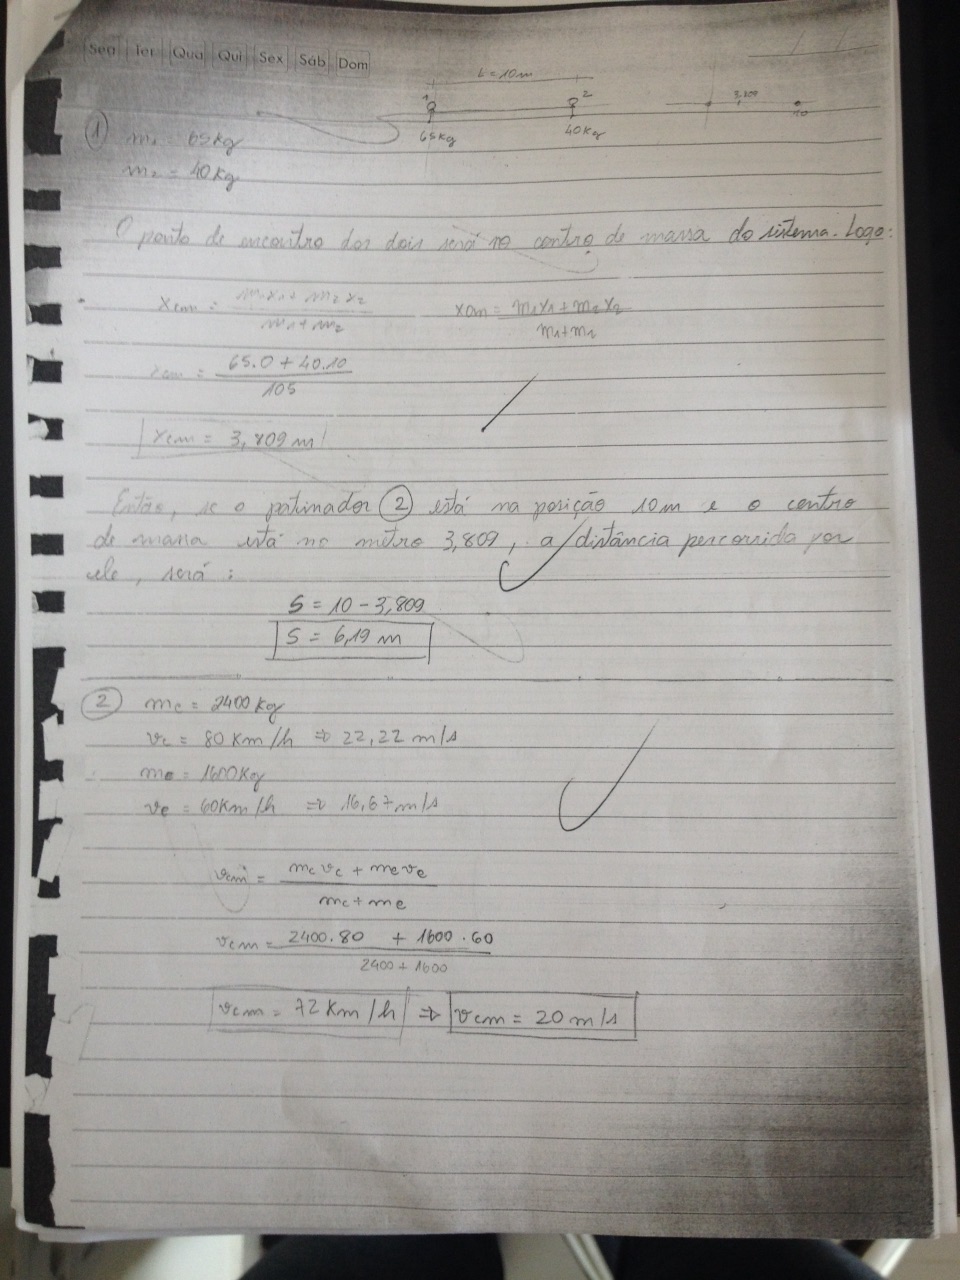 Seg Ter Qua Qui Sex Sáb Dom
L = 10m
1 2 3,809
65kg 40kg 10
1 m₁ = 65kg
m₂ = 40kg
O ponto de encontro dos dois será no centro de massa do sistema. Logo:
xcm = m₁x₁ + m₂x₂ / m₁ + m₂ xcm = m₁x₁ + m₂x₂ / m₁ + m₂
xcm = 65.0 + 40.10 / 105
xcm = 3,809 m
Então, se o patinador 2 está na posição 10m e o centro
de massa está no metro 3,809, a distância percorrida por
ele, será:
S = 10 - 3,809
S = 6,19 m
2 mc = 2400kg
vc = 80 Km/h ⇒ 22,22 m/s
me = 1600kg
ve = 60Km/h ⇒ 16,67m/s
vcm = mcvc + meve / mc + me
vcm = 2400.80 + 1600.60 / 2400 + 1600
vcm = 72 Km/h ⇒ vcm = 20 m/s